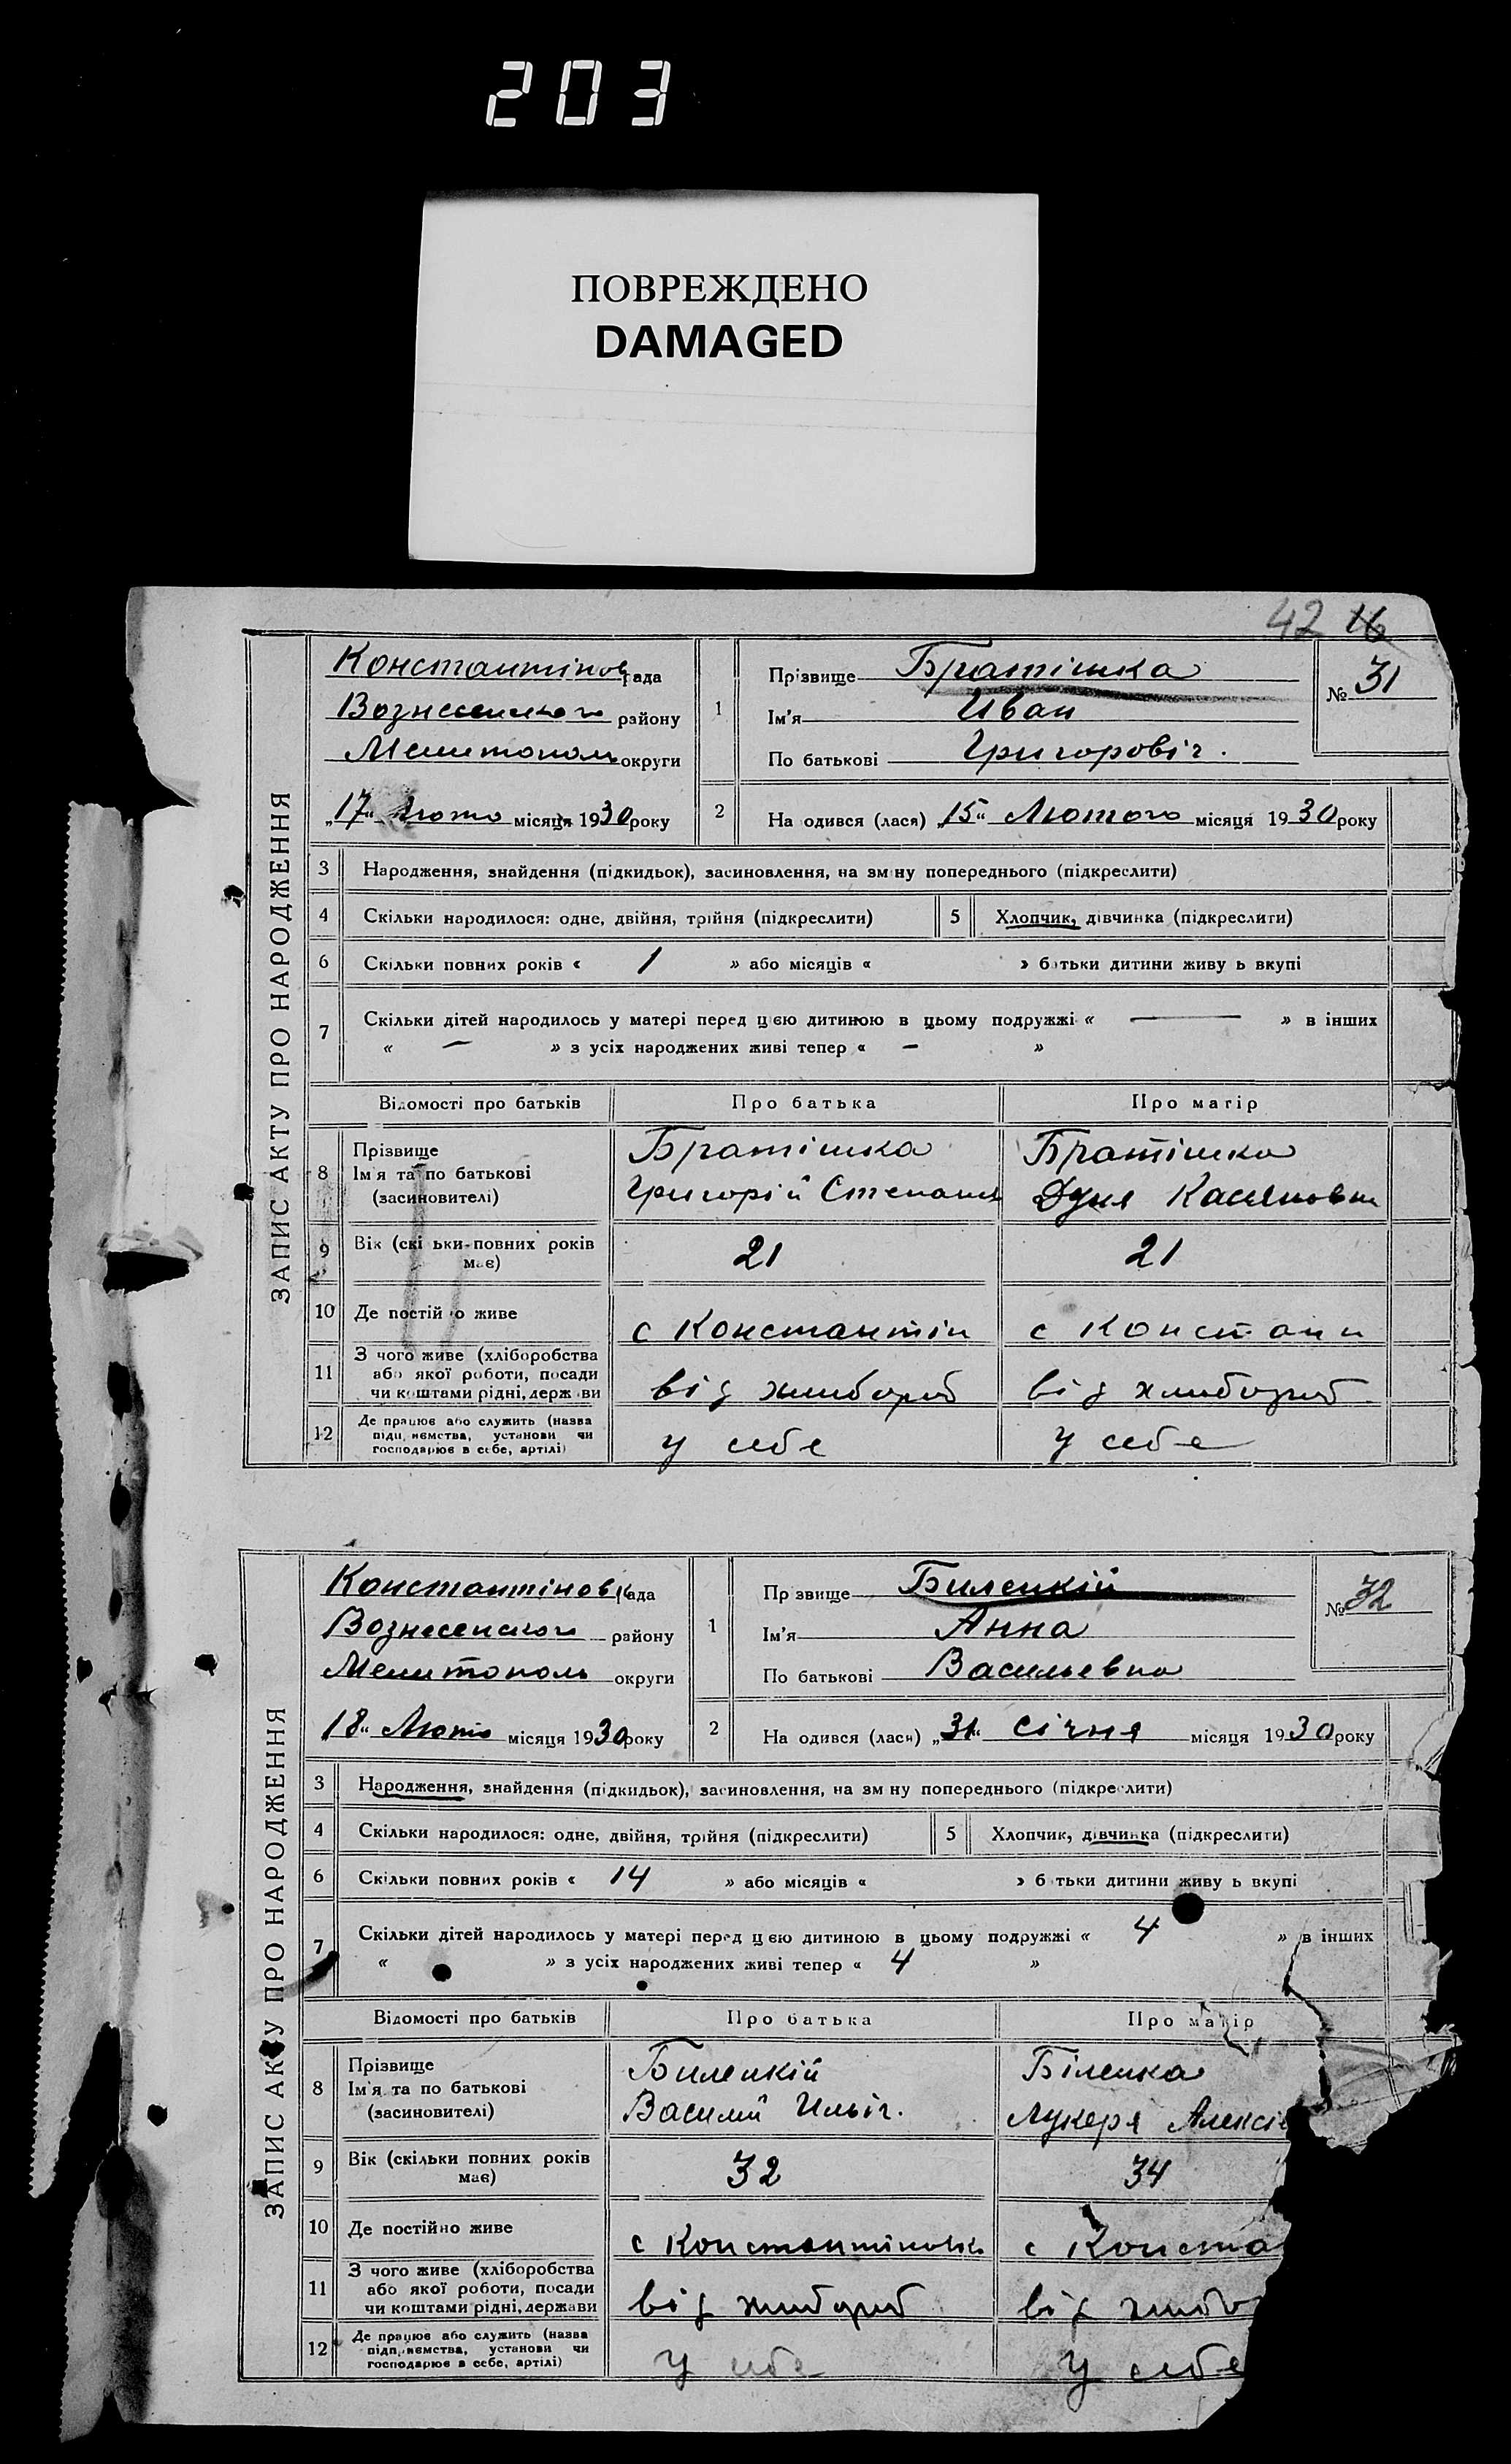 203
ПОВРЕЖДЕНО
DAMAGED
42 16
ЗАПИС АКТУ ПРО НАРОДЖЕННЯ
Константінов рада
Вознесенского району
Мелитополь округи
„17“ Люто місяця 1930 року
1
Прізвище Братішка
Ім'я Иван
По батькові Григоровіч.
№ 31
2 На одився (лася) „15“ Лютого місяця 1930 року
3 Народження, знайдення (підкидьок), засиновлення, на зм ну попереднього (підкреслити)
4 Скільки народилося: одне, двійня, трійня (підкреслити) 5 Хлопчик, дівчинка (підкреслити)
6 Скільки повних років « 1 » або місяців « » батьки дитини живу ь вкупі
7 Скільки дітей народилось у матері перед цією дитиною в цьому подружжі « — » в інших
« — » з усіх народжених живі тепер « — »
Відомості про батьків Про батька Про матір
8 Прізвище Братішка Братішка
Ім'я та по батькові Григорій Степанов Дуня Касяновн
(засиновителі)
9 Вік (скі ьки-повних років має) 21 21
10 Де постій о живе с Константін с Констан
11 З чого живе (хліборобства
або якої роботи, посади від хлибороб від хлибороб
чи коштами рідні, держ ви
12 Де працює або служить (назва
підп иємства, установи чи у себе у себе
господарює в себе, артілі)
ЗАПИС АКТУ ПРО НАРОДЖЕННЯ
Константіновк рада
Вознесенского району
Мелитополь округи
18“ Люто місяця 1930 року
1
Пр звище Билецкій
Ім'я Анна
По батькові Васильевна
№ 32
2 На одився (лася) „31“ Січня місяця 1930 року
3 Народження, знайдення (підкидьок), засиновлення, на зм ну попереднього (підкреслити)
4 Скільки народилося: одне, двійня, трійня (підкреслити) 5 Хлопчик, дівчинка (підкреслити)
6 Скільки повних років « 14 » або місяців « » б тьки дитини живу ь вкупі
7 Скільки дітей народилось у матері перед цією дитиною в цьому подружжі « 4 » в інших
« » з усіх народжених живі тепер « 4 »
Відомості про батьків Про батька Про матір
8 Прізвище Билецкій Біленка
Ім'я та по батькові Василий Ильіч. Лукеря Алексів
(засиновителі)
9 Вік (скільки повних років має) 32 34
10 Де постійно живе с Константіновк с Конста
11 З чого живе (хліборобства
або якої роботи, посади від хлибороб від хлибо
чи коштами рідні, держави
12 Де працює або служить (назва
підп иємства, установи чи у себе у себе
господарює в себе, артілі)